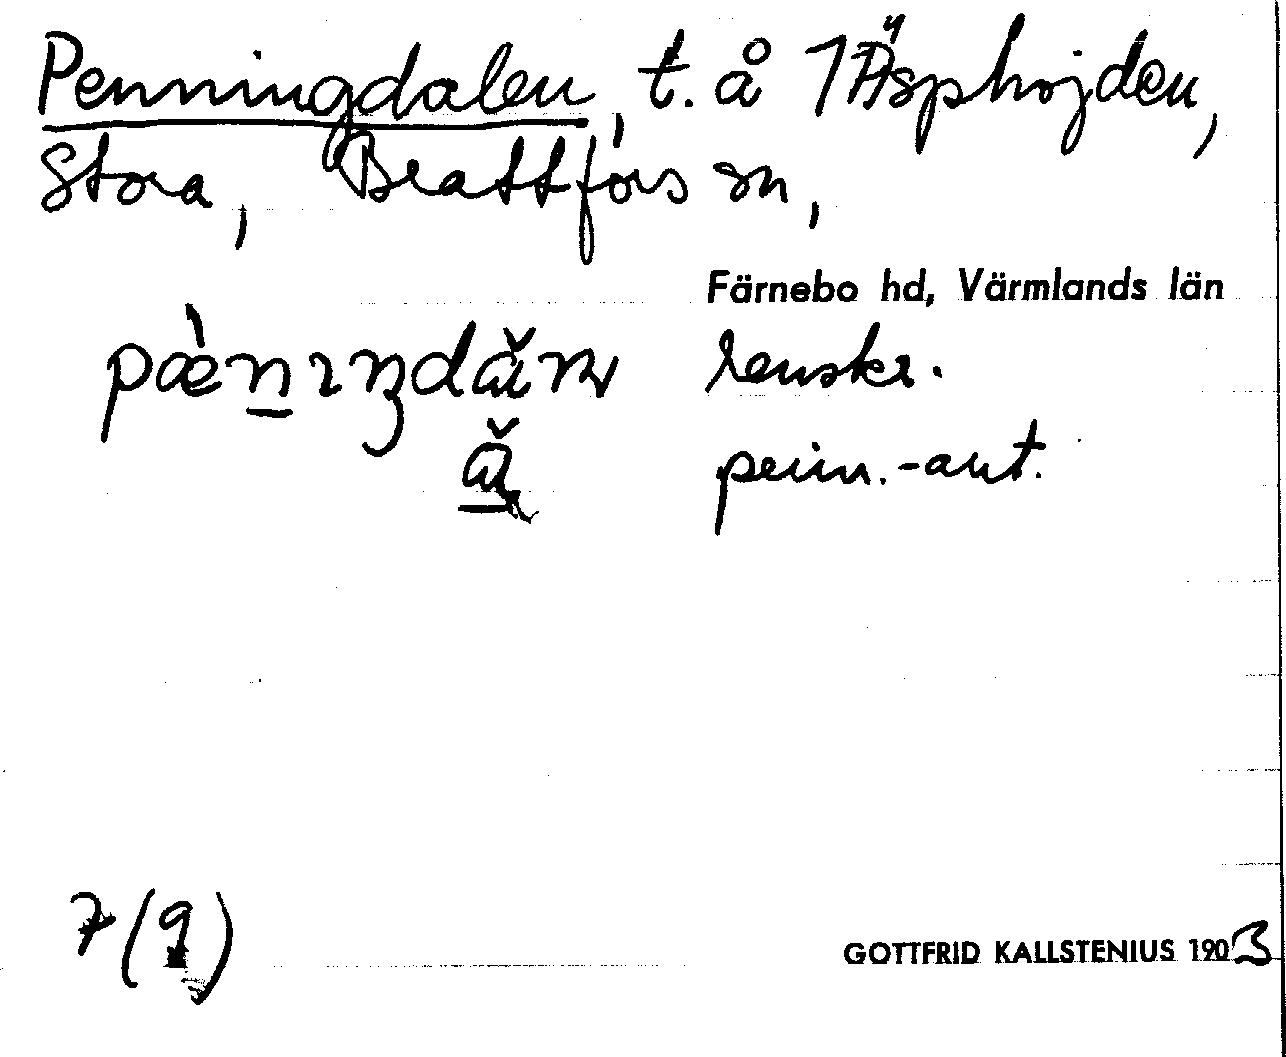 Penningdalen, t. å 1 Äsphöjden,
Stora, Brattfors sn,
Färnebo hd, Värmlands län
pæ̀nıŋdăn renskr.
ă prim.-ant.
7 (9)
GOTTFRID KALLSTENIUS 1903